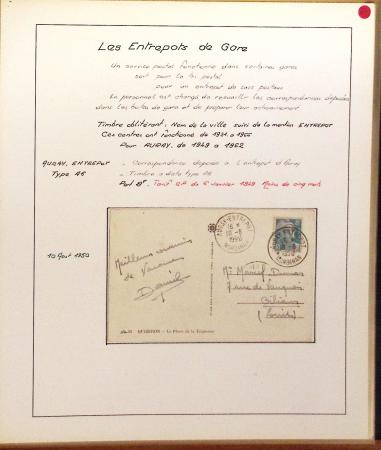 Les Entrepots de Gare
Un service postal fonctionne dans certaines gares
soit pour le tri postal
pour un entrepot de sacs postaux
Ce personnel est chargé de recueillir les correspondances déposées
dans les boites de gare et de preparer leur acheminement
Timbre oblitérant: Nom de la ville suivi de la mention ENTREPOT
Ces centres ont fonctionné de 1921 a 1966
Pour AURAY, de 1949 a 1962
AURAY. ENTREPOT - Correspondance deposée a l'entrepot d'Auray
Type A6 - Timbre a date type A6
Port 8F. Tarif du 6 janvier 1949 Moins de cinq mots
10 Aout 1950
AURAY-ENTREPOT
10-8
1950
MORBIHAN
Meilleurs souvenirs
de Vacances
Daniel
QUIBERON - La Place de la
Mr Marcel
rue de
Orléans
(Loiret)